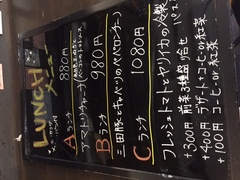 LUNCH
メニュー
Aランチ 880円
アマトリチャーナ
Bランチ 980円
三田豚とキャベツのペペロンチーノ
Cランチ 1080円
フレッシュトマトとヤリイカの冷製
パスタ
+300円 前菜3種盛り合せ
+400円 デザート+コーヒーor紅茶
+100円 コーヒーor紅茶